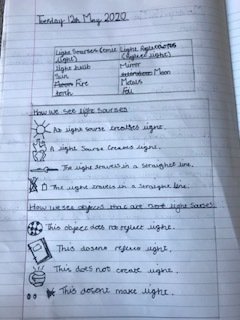 Tuesday 12th May 2020
Light Sourses (emit light) Light Reflectors (reflect light)
light bulb Mirror
Sun Moon
Fire Metals
torch Foil
How we see light sourses
A light sourse creates light.
A light Sourse Creates light.
The light travels in a straight line.
The light travels in a straight line.
How we see objects that are not light sourses.
This object does not reflect light.
This dosent reflect light.
This does not create light.
This dosent make light.